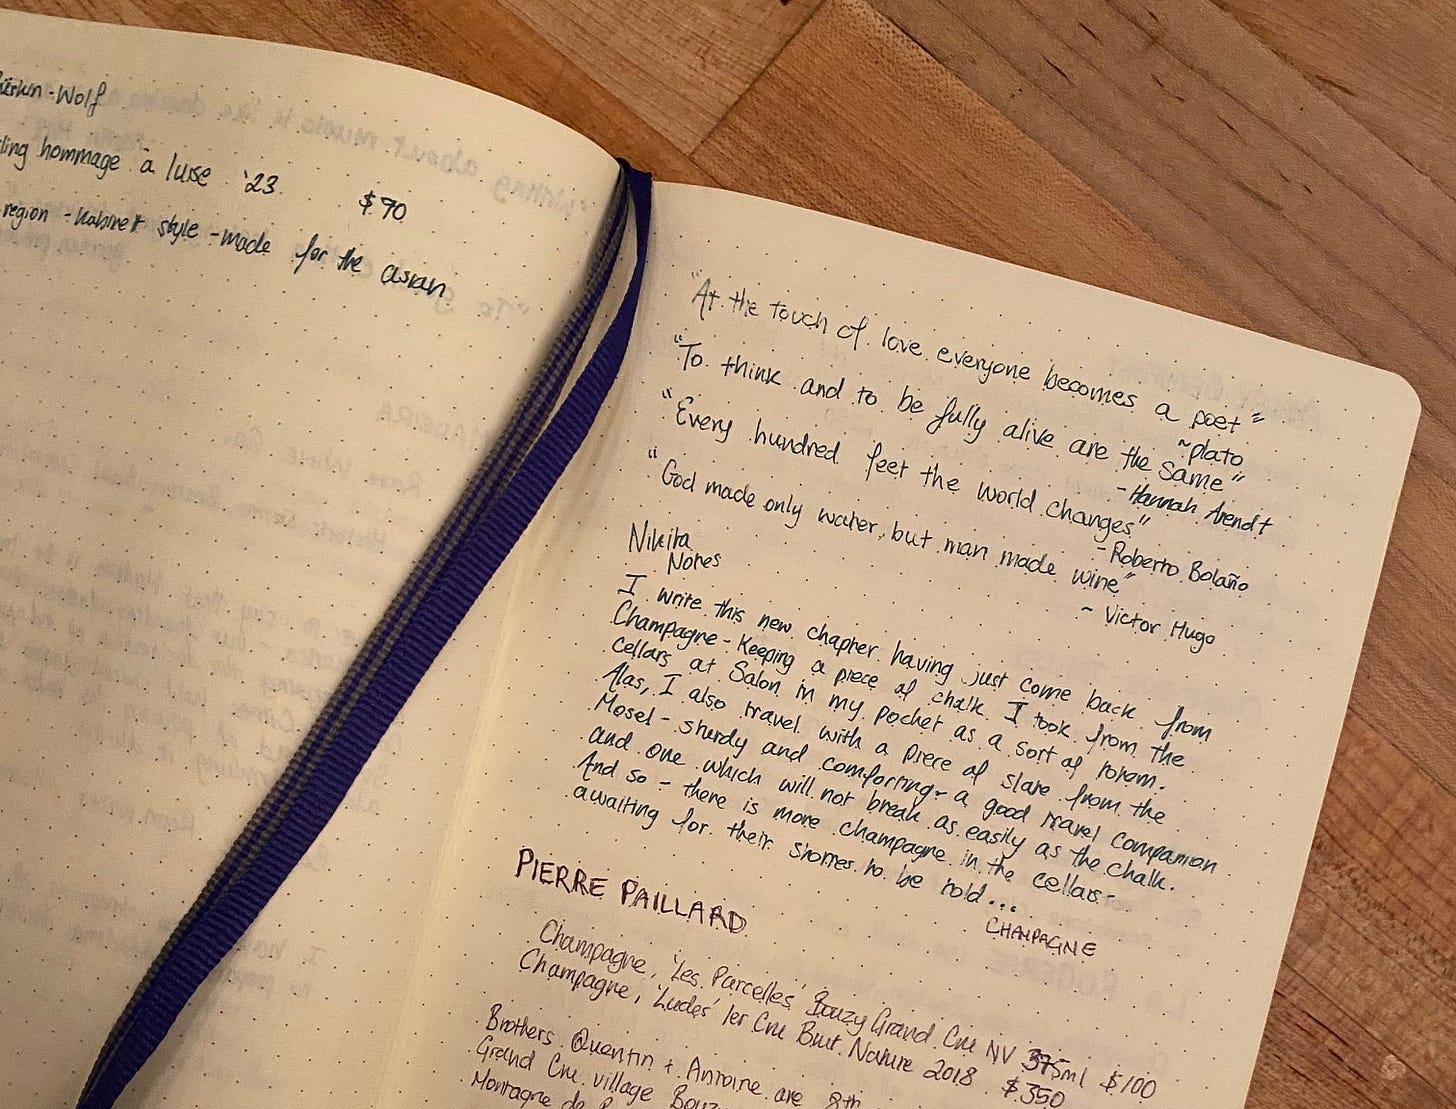 -Wolf
hommage à luise '23 $90
region - Kabinett style - made for the asian
"At the touch of love everyone becomes a poet"
~plato
"To think and to be fully alive are the same"
- Hannah Arendt
"Every hundred feet the world changes"
- Roberto Bolaño
"God made only water, but man made wine"
~ Victor Hugo
Nikita
Notes
I write this new chapter having just come back from
Champagne - Keeping a piece of chalk I took from the
cellars at Salon in my pocket as a sort of totem.
Alas, I also travel with a piece of slate from the
Mosel - sturdy and comforting - a good travel companion
and one which will not break as easily as the chalk.
And so - there is more champagne in the cellars -
awaiting for their stories to be told...
CHAMPAGNE
PIERRE PAILLARD
Champagne, 'Les Parcelles' Bouzy Grand Cru NV 375ml $100
Champagne, 'Ludes' 1er Cru Brut Nature 2018 $350
Brothers Quentin + Antoine are 8th
Grand Cru village Bouzy
Montagne de